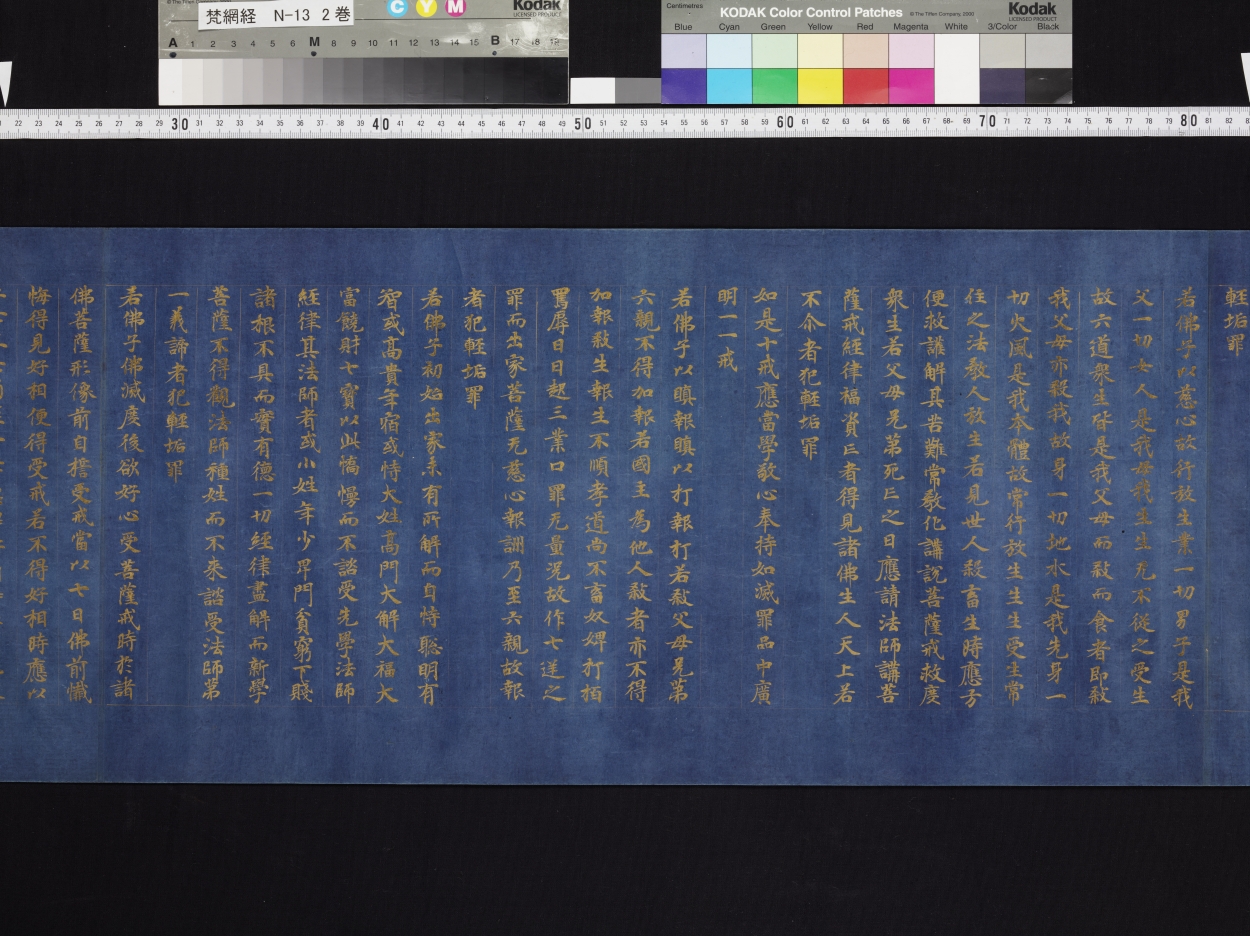 梵網経 N-13 2巻
Kodak
LICENSED PRODUCT
C Y M
A 1 2 3 4 5 6 M 8 9 10 11 12 13 14 15 B 17 18 19
Centimetres
KODAK Color Control Patches
© The Tiffen Company, 2000
Kodak
LICENSED PRODUCT
Blue Cyan Green Yellow Red Magenta White 3/Color Black
22 23 24 25 26 27 28 29 30 31 32 33 34 35 36 37 38 39 40 41 42 43 44 45 46 47 48 49 50 51 52 53 54 55 56 57 58 59 60 61 62 63 64 65 66 67 68 69 70 71 72 73 74 75 76 77 78 79 80 81 82
輕垢罪
若佛子以慈心故行放生業一切男子是我
父一切女人是我母我生生无不從之受生
故六道衆生皆是我父母而敊而食者即敊
我父母亦殺我故身一切地水是我先身一
切火風是我本體故常行放生生生受生常
住之法教人放生若見世人殺畜生時應方
便救護解其苦難常教化講説菩薩戒救度
衆生若父母兄弟死亡之日應請法師講菩
薩戒經律福資亡者得見諸佛生人天上若
不尒者犯輕垢罪
如是十戒應當學敬心奉持如滅罪品中廣
明一一戒
若佛子以瞋報瞋以打報打若敊父母兄弟
六親不得加報若國主為他人敊者亦不得
加報敊生報生不順孝道尚不畜奴婢打拍
罵辱日日起三業口罪无量況故作七逆之
罪而出家菩薩无慈心報詶乃至六親故報
者犯輕垢罪
若佛子初始出家未有所解而自恃聡明有
智或高貴年宿或恃大姓高門大解大福大
富饒財七寶以此憍慢而不諮受先學法師
經律其法師者或小姓年少卑門貧窮下賤
諸根不具而實有德一切經律盡解而新學
菩薩不得觀法師種姓而不來諮受法師第
一義諦者犯輕垢罪
若佛子佛滅度後欲好心受菩薩戒時於諸
佛菩薩形像前自誓受戒當以七日佛前懺
悔得見好相便得受戒若不得好相時應以